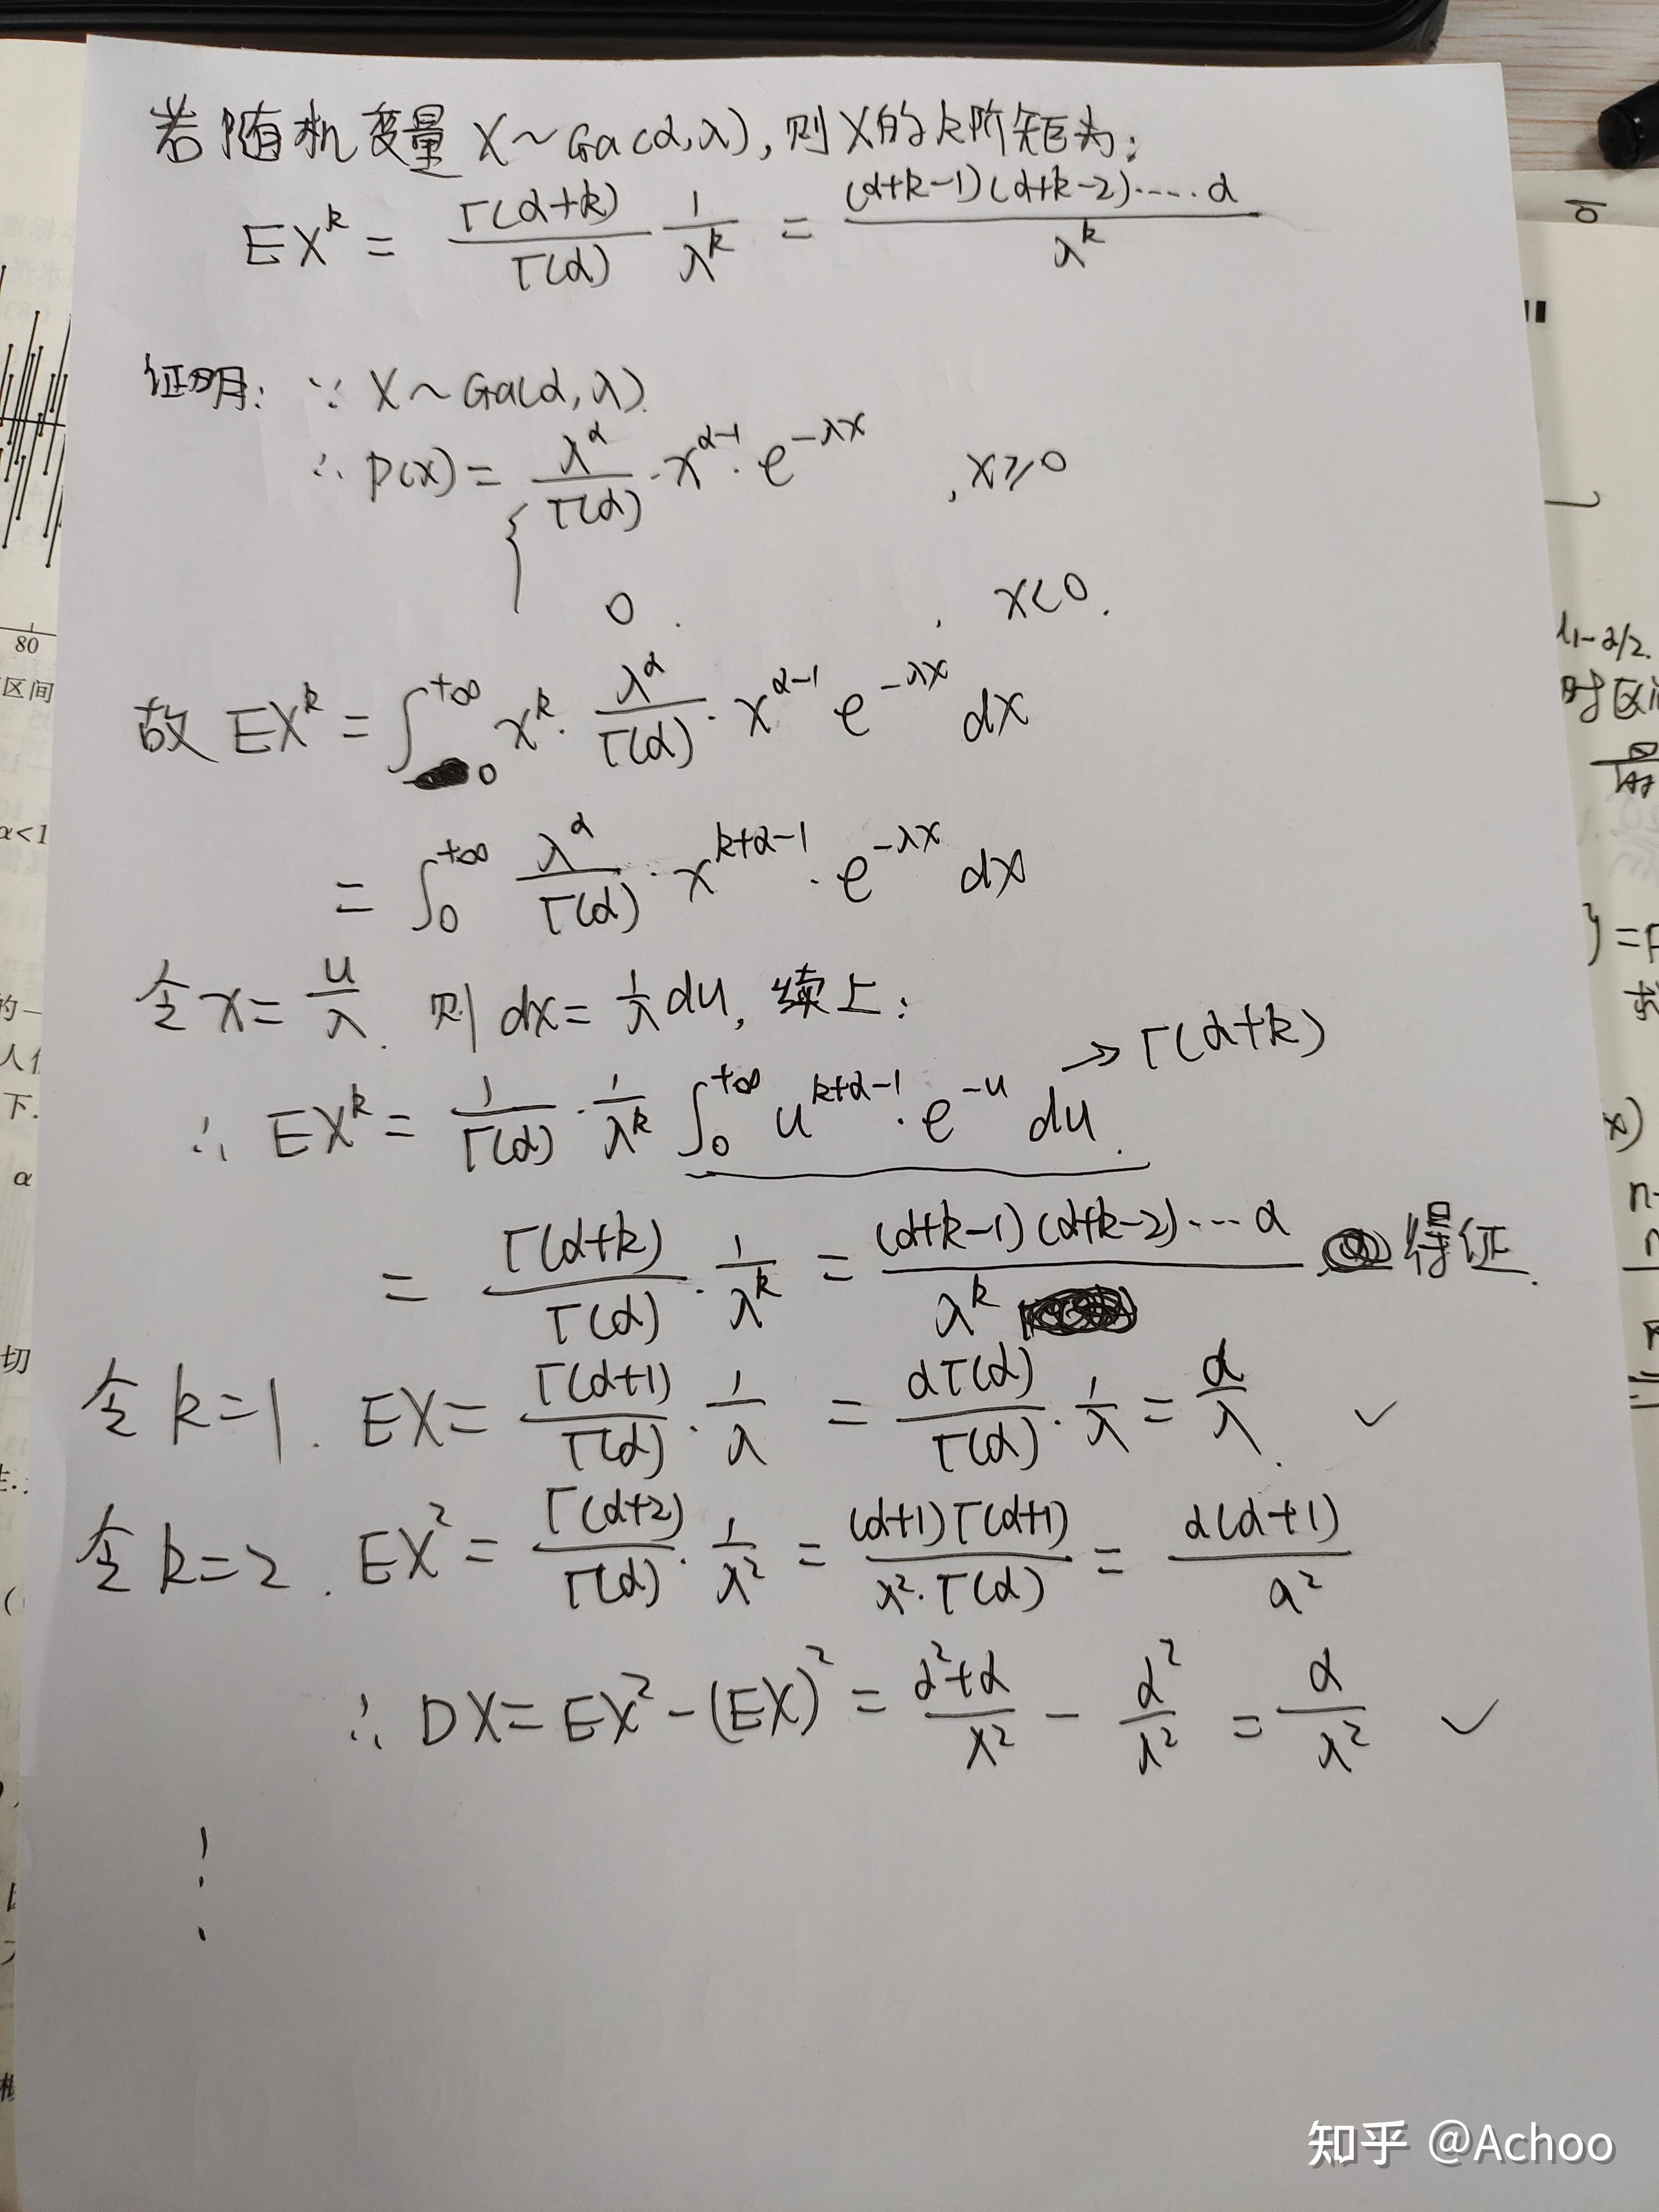 若随机变量 X~Ga(α,λ),则X的k阶矩为:
EX^k = Γ(α+k)/Γ(α) 1/λ^k = (α+k-1)(α+k-2)····α/λ^k
证明: ∵ X~Ga(α,λ).
∴ P(x) = { λ^α/Γ(α) · x^(α-1) · e^(-λx) , x≥0
0 , x<0.
故 EX^k = ∫_0^(+∞) x^k · λ^α/Γ(α) · x^(α-1) e^(-λx) dx
= ∫_0^(+∞) λ^α/Γ(α) · x^(k+α-1) · e^(-λx) dx
令 x = u/λ. 则 dx = 1/λ du, 续上:
∴ EX^k = 1/Γ(α) · 1/λ^k ∫_0^(+∞) u^(k+α-1) · e^(-u) du. → Γ(α+k)
= Γ(α+k)/Γ(α) · 1/λ^k = (α+k-1)(α+k-2)···α/λ^k 得证.
令 k=1. EX = Γ(α+1)/Γ(α) · 1/λ = αΓ(α)/Γ(α) · 1/λ = α/λ. ✓
令 k=2. EX^2 = Γ(α+2)/Γ(α) · 1/λ^2 = (α+1)Γ(α+1)/λ^2·Γ(α) = α(α+1)/a^2
∴ DX = EX^2 - (EX)^2 = α^2+α/λ^2 - α^2/λ^2 = α/λ^2 ✓
80
区间
α<1
的一
下.
α
切
知乎 @Achoo